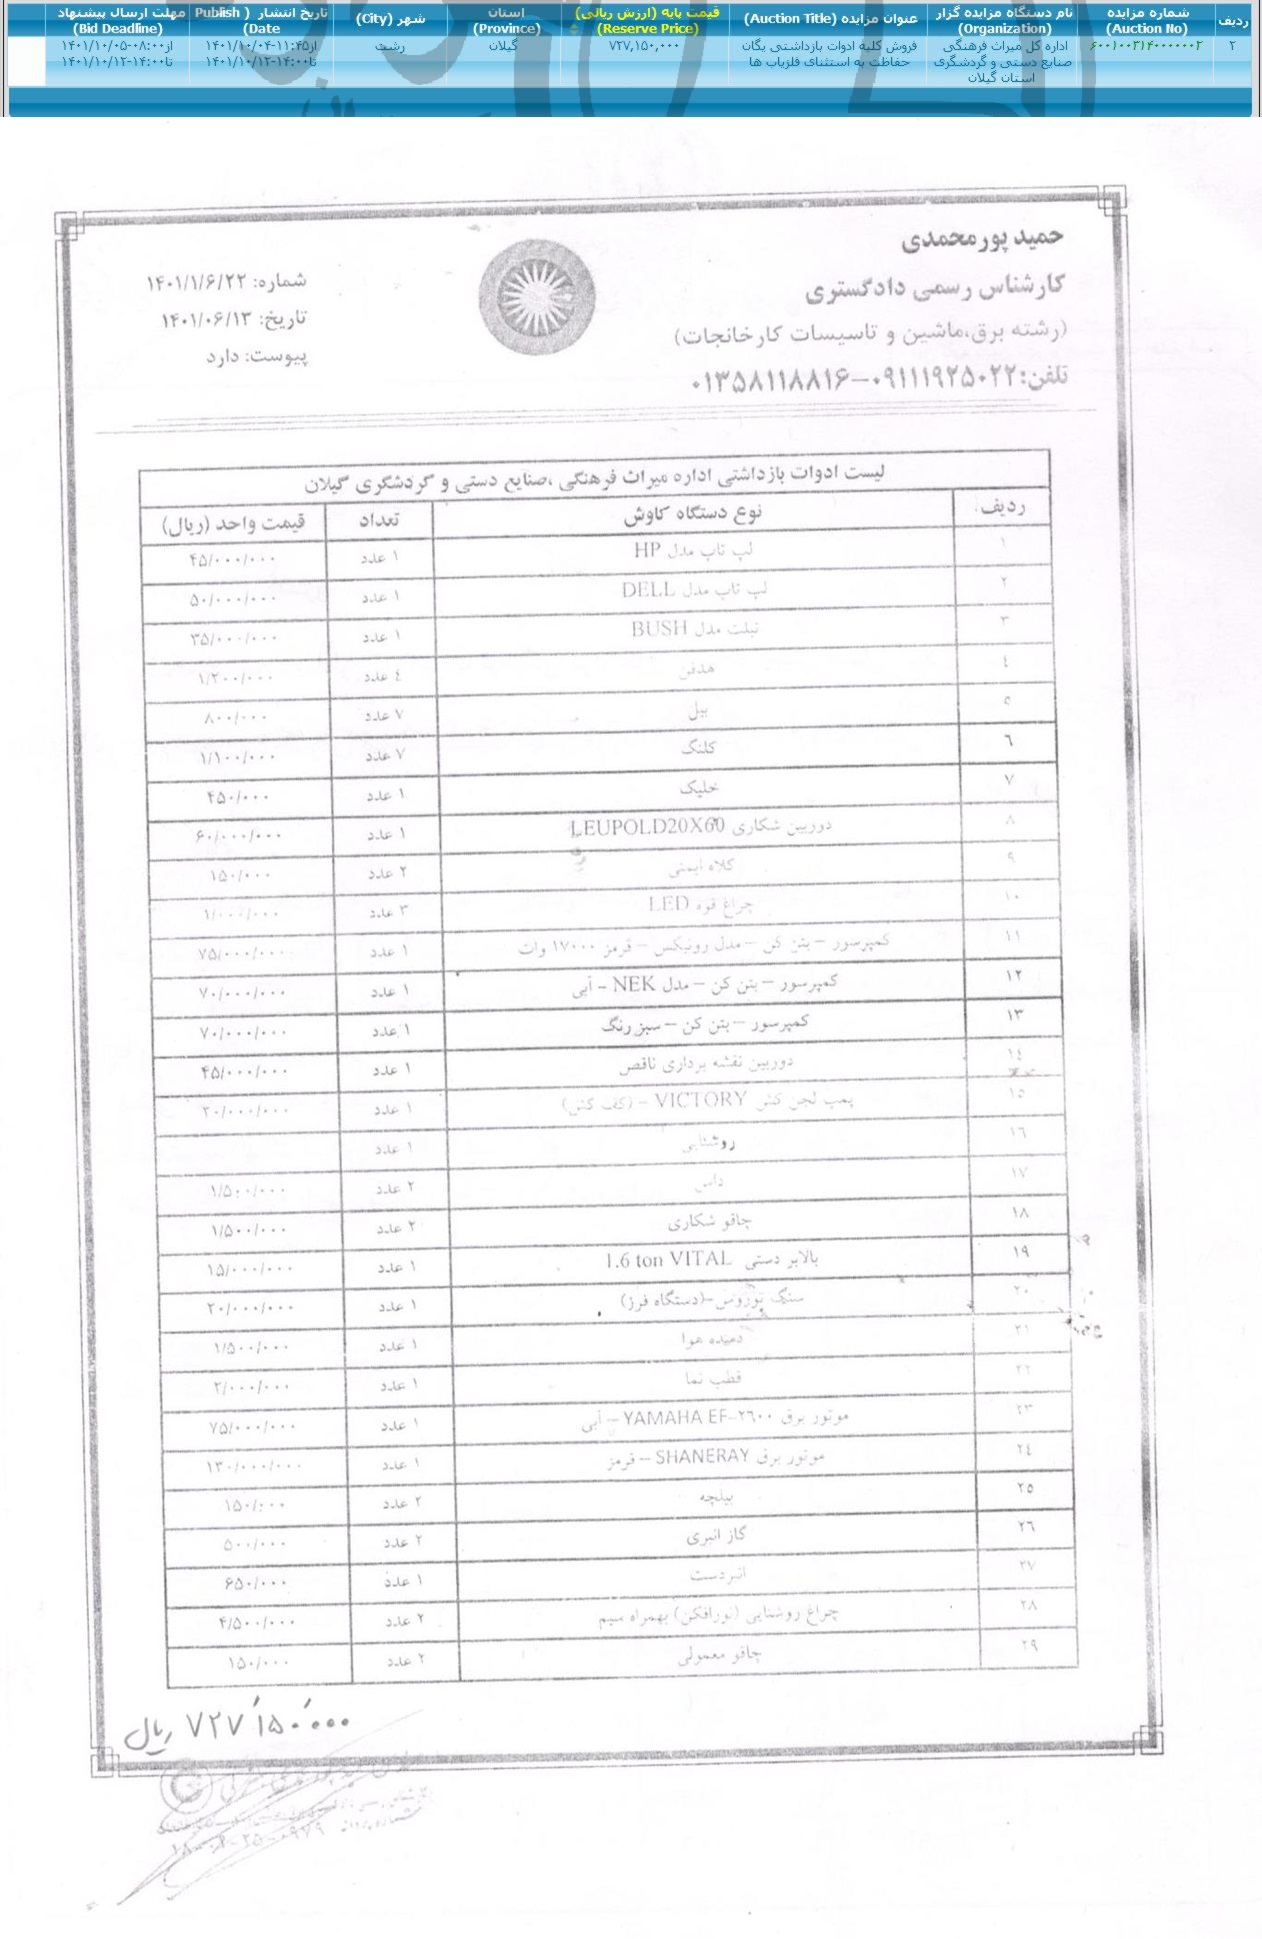 ردیف	شماره مزایده (Auction No)	نام دستگاه مزایده گزار (Organization)	عنوان مزایده (Auction Title)	قیمت پایه (ارزش ریالی) (Reserve Price)	استان (Province)	شهر (City)	تاریخ انتشار (Publish Date)	مهلت ارسال پیشنهاد (Bid Deadline)
۲	۶۰۰۱۰۰۳۱۴۰۰۰۰۰۰۲	اداره کل میراث فرهنگی صنایع دستی و گردشگری استان گیلان	فروش کلیه ادوات بازداشتی یگان حفاظت به استثنای فلزیاب ها	۷۲۷,۱۵۰,۰۰۰	گیلان	رشت	از۱۱:۴۵-۱۴۰۱/۱۰/۰۴ تا۱۴:۰۰-۱۴۰۱/۱۰/۱۲	از۰۸:۰۰-۱۴۰۱/۱۰/۰۵ تا۱۴:۰۰-۱۴۰۱/۱۰/۱۲
حمید پورمحمدی
کارشناس رسمی دادگستری
(رشته برق،ماشین و تاسیسات کارخانجات)
تلفن:۰۹۱۱۱۹۲۵۰۲۲-۰۱۳۵۸۱۱۸۸۱۶
شماره: ۱۴۰۱/۱/۶/۲۲
تاریخ: ۱۴۰۱/۰۶/۱۳
پیوست: دارد
لیست ادوات بازداشتی اداره میراث فرهنگی ،صنایع دستی و گردشگری گیلان
ردیف	نوع دستگاه کاوش	تعداد	قیمت واحد (ریال)
۱	لپ تاپ مدل HP	۱ عدد	۴۵/۰۰۰/۰۰۰
۲	لپ تاپ مدل DELL	۱ عدد	۵۰/۰۰۰/۰۰۰
۳	تبلت مدل BUSH	۱ عدد	۳۵/۰۰۰/۰۰۰
٤	هدفن	٤ عدد	۱/۲۰۰/۰۰۰
۵	بیل	۷ عدد	۸۰۰/۰۰۰
٦	کلنگ	۷ عدد	۱/۱۰۰/۰۰۰
۷	خلیک	۱ عدد	۴۵۰/۰۰۰
۸	دوربین شکاری LEUPOLD20X60	۱ عدد	۶۰/۰۰۰/۰۰۰
۹	کلاه ایمنی	۲ عدد	۱۵۰/۰۰۰
۱۰	چراغ قوه LED	۳ عدد	۱/۰۰۰/۰۰۰
۱۱	کمپرسور – بتن کن – مدل رونیکس – قرمز ۱۷۰۰۰ وات	۱ عدد	۷۵/۰۰۰/۰۰۰
۱۲	کمپرسور – بتن کن – مدل NEK – آبی	۱ عدد	۷۰/۰۰۰/۰۰۰
۱۳	کمپرسور – بتن کن – سبز رنگ	۱ عدد	۷۰/۰۰۰/۰۰۰
۱٤	دوربین نقشه برداری ناقص	۱ عدد	۴۵/۰۰۰/۰۰۰
۱۵	پمپ لجن کش VICTORY – (کف کش)	۱ عدد	۲۰/۰۰۰/۰۰۰
۱٦	روشنایی	۱ عدد
۱۷	داس	۲ عدد	۱/۵۰۰/۰۰۰
۱۸	چاقو شکاری	۲ عدد	۱/۵۰۰/۰۰۰
۱۹	بالابر دستی 1.6 ton VITAL	۱ عدد	۱۵/۰۰۰/۰۰۰
۲۰	سنگ توروش-(دستگاه فرز)	۱ عدد	۲۰/۰۰۰/۰۰۰
۲۱	دمیده هوا	۱ عدد	۱/۵۰۰/۰۰۰
۲۲	قطب نما	۱ عدد	۲/۰۰۰/۰۰۰
۲۳	موتور برق YAMAHA EF-۲٦۰۰ – آبی	۱ عدد	۷۵/۰۰۰/۰۰۰
۲٤	موتور برق SHANERAY – قرمز	۱ عدد	۱۳۰/۰۰۰/۰۰۰
۲۵	بیلچه	۲ عدد	۱۵۰/۰۰۰
۲٦	گاز انبری	۲ عدد	۵۰۰/۰۰۰
۲۷	انبردست	۱ عدد	۶۵۰/۰۰۰
۲۸	چراغ روشنایی (نورافکن) بهمراه سیم	۲ عدد	۴/۵۰۰/۰۰۰
۲۹	چاقو معمولی	۲ عدد	۱۵۰/۰۰۰
۷۲۷٬۱۵۰٬۰۰۰ ریال